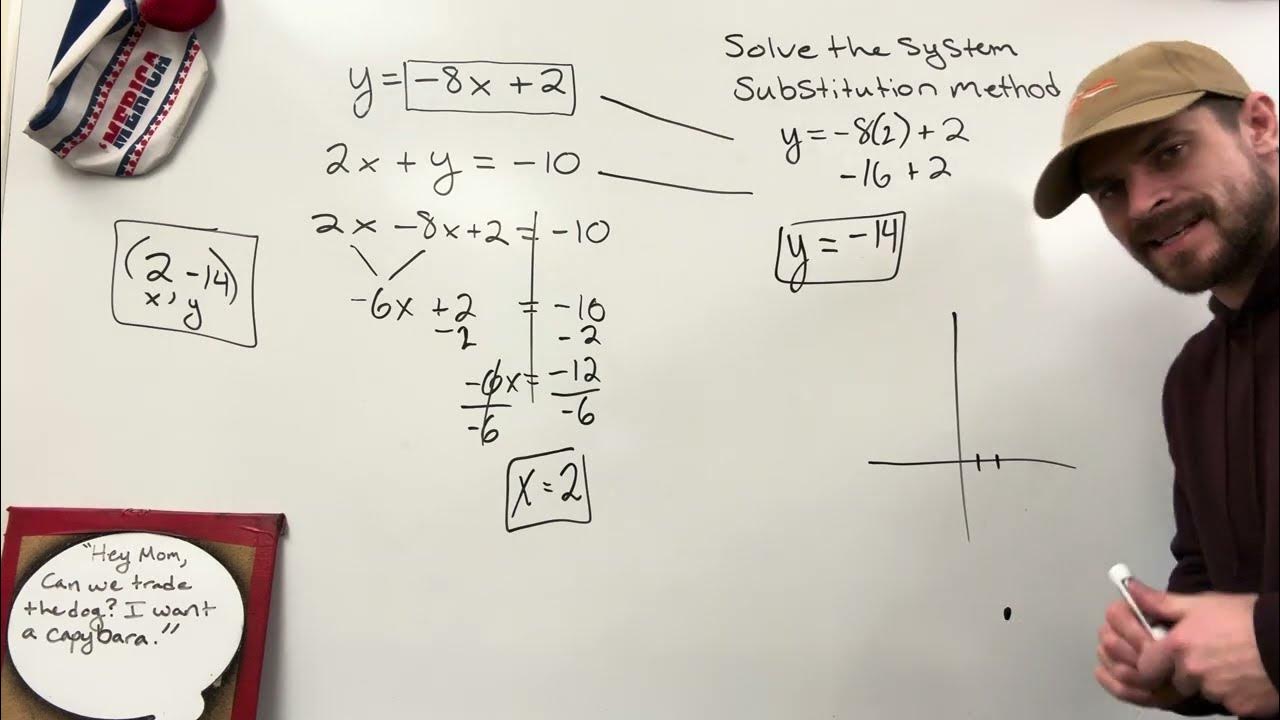 'MERICA
Solve the System
Substitution method
y = -8x + 2
2x + y = -10
2x -8x+2 = -10
-6x +2 = -10
-2 -2
-6x = -12
-6 -6
x = 2
y = -8(2) + 2
-16 + 2
y = -14
(2 -14)
x, y
"Hey Mom,
Can we trade
the dog? I want
a capybara."